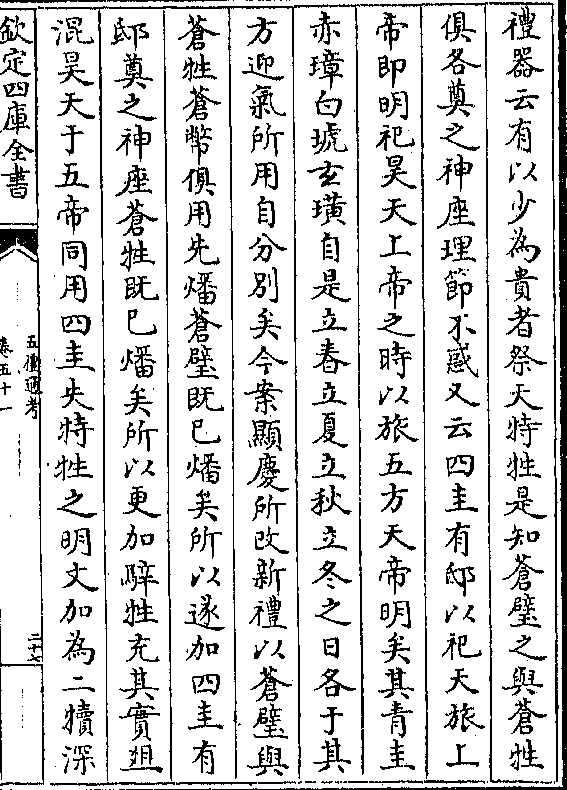 禮器云有以少為貴者祭天特牲是知蒼璧之與蒼牲
俱各奠之神座理節不惑又云四圭有邸以祀天旅上
帝即明祀昊天上帝之時以旅五方天帝明矣其青圭
赤璋白琥玄璜自是立春立夏立秋立冬之日各于其
方迎氣所用自分别矣今案顯慶所改新禮以蒼璧與
蒼牲蒼幣俱用先燔蒼璧既已燔矣所以遂加四圭有
邸奠之神座蒼牲既已燔矣所以更加騂牲充其實俎
混昊天于五帝同用四圭失特牲之明文加為二犢深
欽定四庫全書
五禮通考
卷五十一
二十七